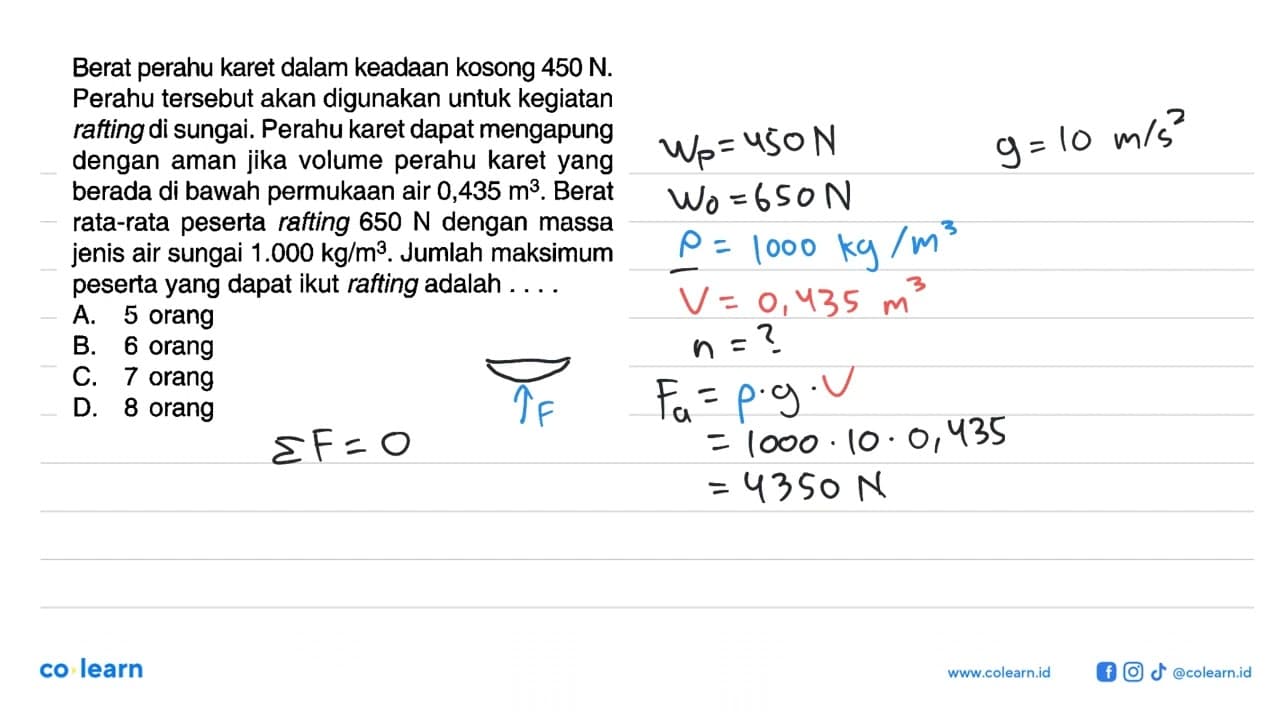 Berat perahu karet dalam keadaan kosong 450 N.
Perahu tersebut akan digunakan untuk kegiatan
rafting di sungai. Perahu karet dapat mengapung
dengan aman jika volume perahu karet yang
berada di bawah permukaan air 0,435 m³. Berat
rata-rata peserta rafting 650 N dengan massa
jenis air sungai 1.000 kg/m³. Jumlah maksimum
peserta yang dapat ikut rafting adalah . . . .
A. 5 orang
B. 6 orang
C. 7 orang
D. 8 orang
↑F
ΣF = 0
Wp = 450 N
g = 10 m/s²
Wo = 650 N
ρ = 1000 kg/m³
V = 0,435 m³
n = ?
Fa = ρ·g·V
= 1000 · 10 · 0,435
= 4350 N
co learn
www.colearn.id
@colearn.id